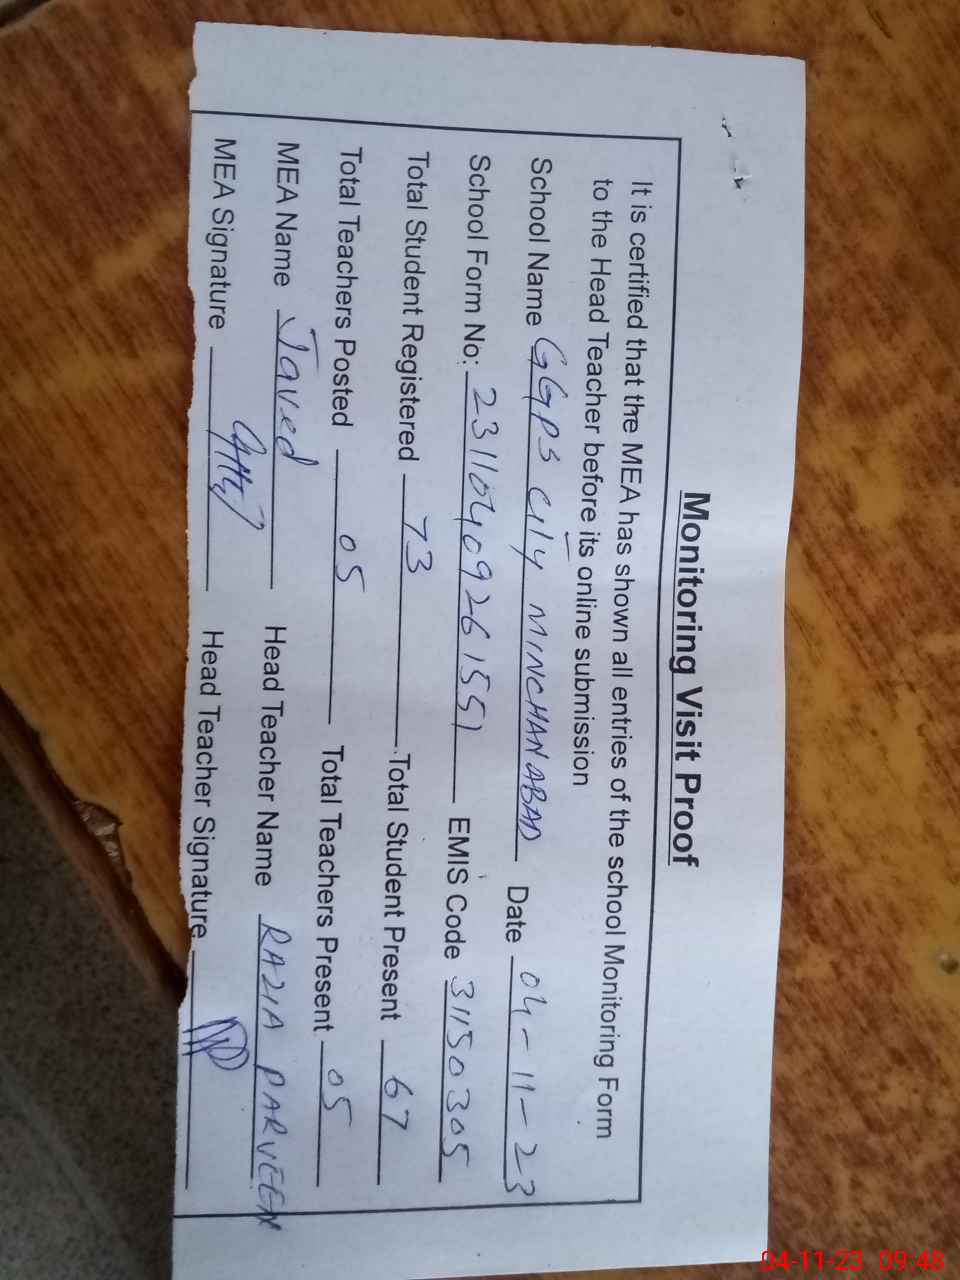 Monitoring Visit Proof
It is certified that the MEA has shown all entries of the school Monitoring Form
to the Head Teacher before its online submission
School Name GGPS City MINCHANABAD Date 04-11-23
School Form No: 23110409261551 EMIS Code 31150305
Total Student Registered 73 Total Student Present 67
Total Teachers Posted 05 Total Teachers Present 05
MEA Name Javed Head Teacher Name RAZIA PARVEEN
MEA Signature Head Teacher Signature
04-11-23 09:48